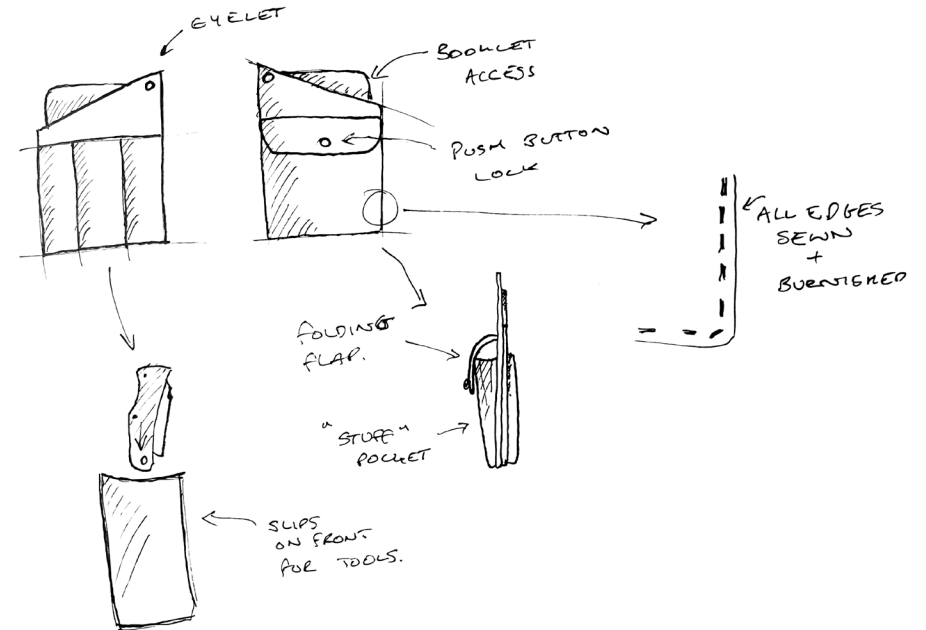 EYELET
BOOKLET
ACCESS
PUSH BUTTON
LOCK
ALL EDGES
SEWN
+
BURNISHED
FOLDING
FLAP.
"STUFF"
POCKET
SLIPS
ON FRONT
FOR TOOLS.